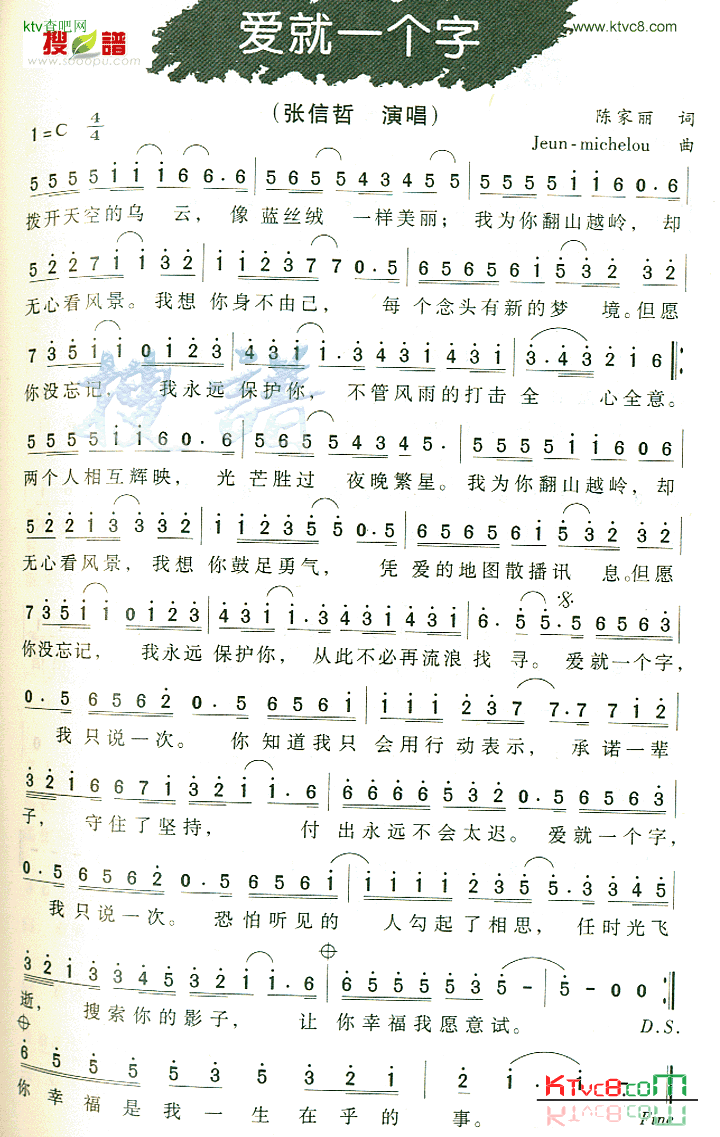 ktv查吧网
搜谱
www.sooopu.com
爱就一个字
www.ktvc8.com
(张信哲 演唱)
1=C 4/4
陈家丽 词
Jeun-michelou 曲
拨开天空的乌 云, 像 蓝丝绒 一样美丽; 我为你翻山越岭, 却
无心看风景。我想 你身不由己, 每 个念头有新的梦 境。但愿
你没忘记, 我永远 保护你, 不管风雨的打击 全 心全意。
两个人相互辉映, 光 芒胜过 夜晚繁星。我为你翻山越岭, 却
无心看风景, 我想 你鼓足勇气, 凭 爱的地图散播讯 息。但愿
你没忘记, 我永远 保护你, 从此不必再流浪 找 寻。 爱就一个字,
我 只说一次。 你 知道我只 会用行 动表示, 承诺一辈
子, 守住了坚持, 付 出永远不会太迟。爱就一个字,
我 只说一次。 恐怕听见的 人勾起了相思, 任时光飞
逝, 搜索你的影子, 让 你幸福我愿意试。 D.S.
你 幸 福 是 我 一 生 在 乎 的 事。 Fine
KTvc8.com